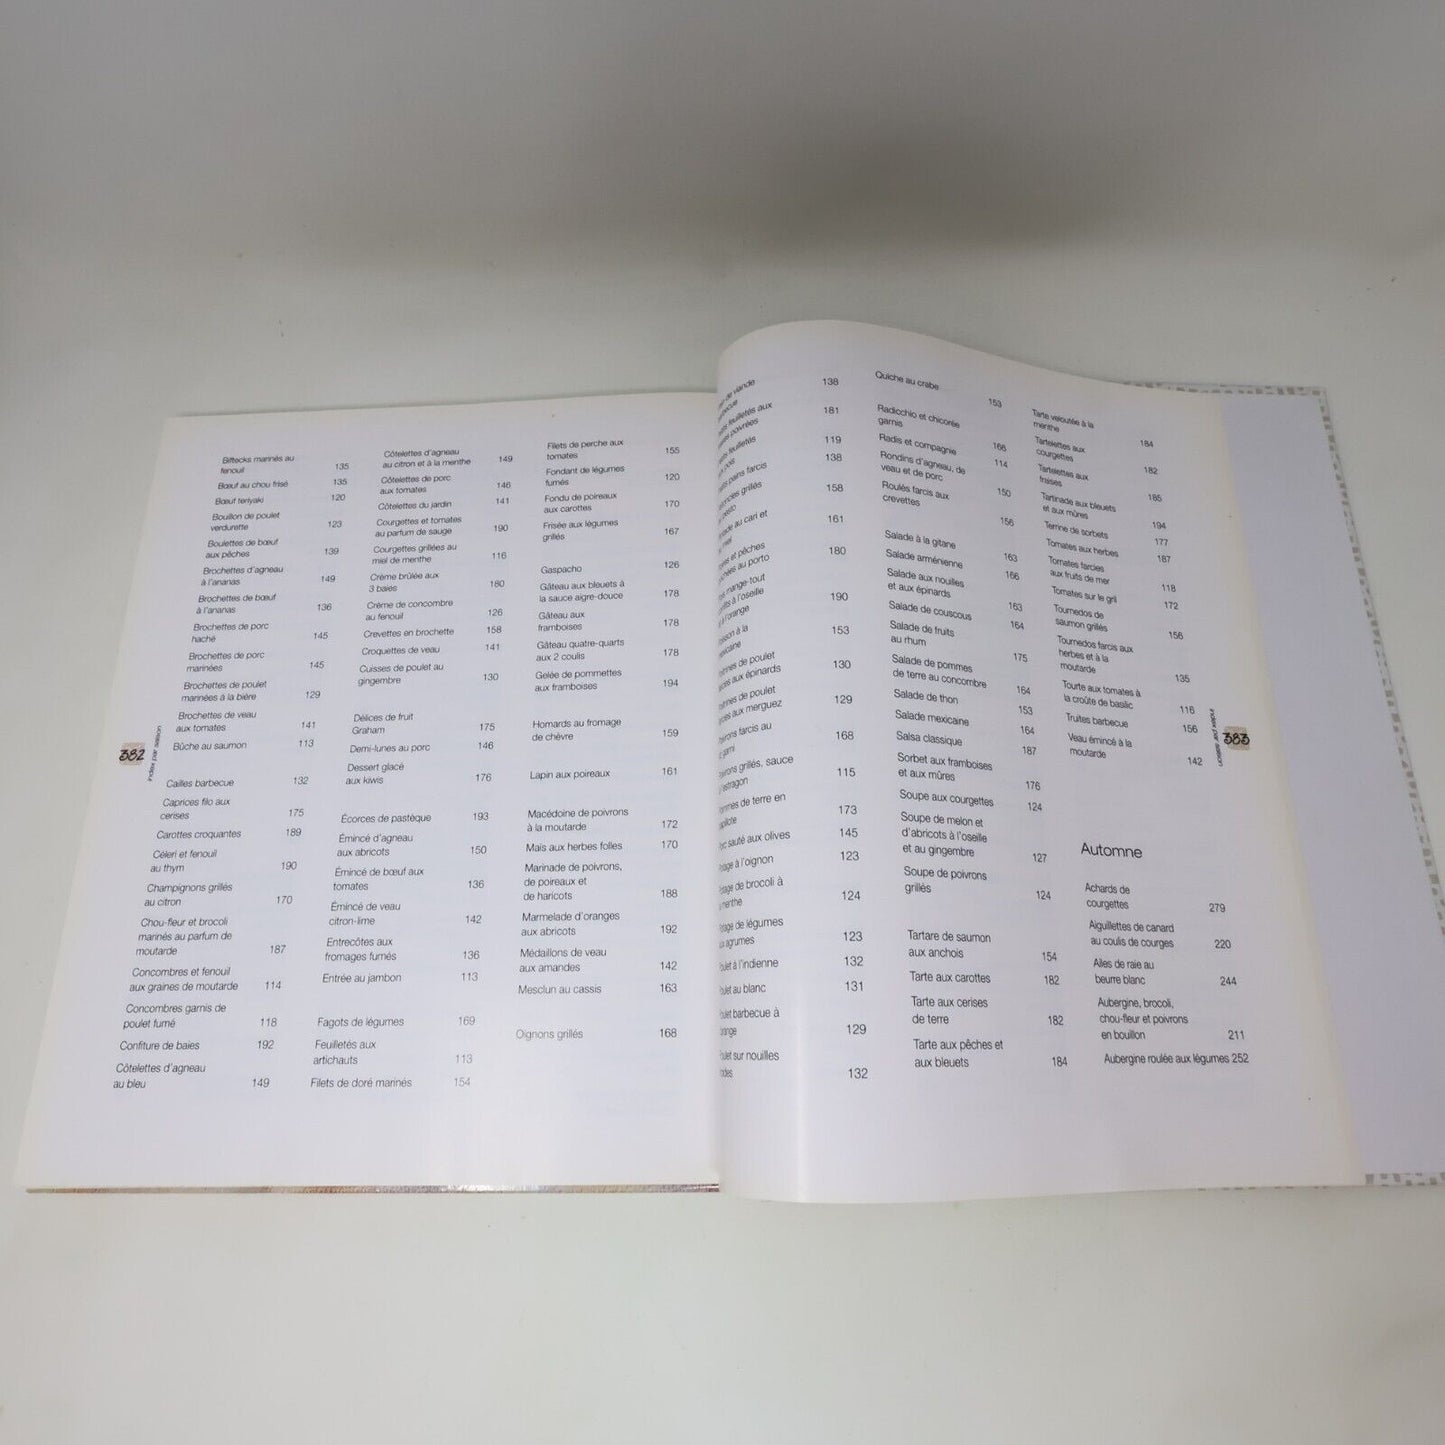 Biftecks marinés au
fenouil 135
Bœuf au chou frisé 135
Bœuf teriyaki 120
Bouillon de poulet
verdurette 123
Boulettes de bœuf
aux pêches 139
Brochettes d'agneau
à l'ananas 149
Brochettes de bœuf
à l'ananas 136
Brochettes de porc
haché 145
Brochettes de porc
marinées 145
Brochettes de poulet
marinées à la bière 129
Brochettes de veau
aux tomates 141
Bûche au saumon 113
Cailles barbecue 132
Caprices filo aux
cerises 175
Carottes croquantes 189
Céleri et fenouil
au thym 190
Champignons grillés
au citron 170
Chou-fleur et brocoli
marinés au parfum de
moutarde 187
Concombres et fenouil
aux graines de moutarde 114
Concombres garnis de
poulet fumé 118
Confiture de baies 192
Côtelettes d'agneau
au bleu 149
382
index par saison
Côtelettes d'agneau
au citron et à la menthe 149
Côtelettes de porc
aux tomates 146
Côtelettes du jardin 141
Courgettes et tomates
au parfum de sauge 190
Courgettes grillées au
miel de menthe 116
Crème brûlée aux
3 baies 180
Crème de concombre
au fenouil 126
Crevettes en brochette 158
Croquettes de veau 141
Cuisses de poulet au
gingembre 130
Délices de fruit
Graham 175
Demi-lunes au porc 146
Dessert glacé
aux kiwis 176
Écorces de pastèque 193
Émincé d'agneau
aux abricots 150
Émincé de bœuf aux
tomates 136
Émincé de veau
citron-lime 142
Entrecôtes aux
fromages fumés 136
Entrée au jambon 113
Fagots de légumes 169
Feuilletés aux
artichauts 113
Filets de doré marinés 154
Filets de perche aux
tomates 155
Fondant de légumes
fumés 120
Fondu de poireaux
aux carottes 170
Frisée aux légumes
grillés 167
Gaspacho 126
Gâteau aux bleuets à
la sauce aigre-douce 178
Gâteau aux
framboises 178
Gâteau quatre-quarts
aux 2 coulis 178
Gelée de pommettes
aux framboises 194
Homards au fromage
de chèvre 159
Lapin aux poireaux 161
Macédoine de poivrons
à la moutarde 172
Maïs aux herbes folles 170
Marinade de poivrons,
de poireaux et
de haricots 188
Marmelade d'oranges
aux abricots 192
Médaillons de veau
aux amandes 142
Mesclun au cassis 163
Oignons grillés 168
de viande
138
feuilletés aux
poivrées 181
feuilletés
119
pains farcis 138
grillés
158
au cari et
161
et pêches
au porto 180
mange-tout
à l'oseille
à l'orange 190
à la
153
de poulet
aux épinards 130
de poulet
aux merguez 129
farcis au
168
grillés, sauce
115
de terre en
173
sauté aux olives 145
à l'oignon 123
de brocoli à
124
de légumes
123
à l'indienne 132
au blanc 131
barbecue à
129
sur nouilles
132
Quiche au crabe 153
Radicchio et chicorée
garnis 166
Radis et compagnie 114
Rondins d'agneau, de
veau et de porc 150
Roulés farcis aux
crevettes 156
Salade à la gitane 163
Salade arménienne 166
Salade aux nouilles
et aux épinards 163
Salade de couscous 164
Salade de fruits
au rhum 175
Salade de pommes
de terre au concombre 164
Salade de thon 153
Salade mexicaine 164
Salsa classique 187
Sorbet aux framboises
et aux mûres 176
Soupe aux courgettes 124
Soupe de melon et
d'abricots à l'oseille
et au gingembre 127
Soupe de poivrons
grillés 124
Tartare de saumon
aux anchois 154
Tarte aux carottes 182
Tarte aux cerises
de terre 182
Tarte aux pêches et
aux bleuets 184
Tarte veloutée à la
menthe 184
Tartelettes aux
courgettes 182
Tartelettes aux
fraises 185
Tartinade aux bleuets
et aux mûres 194
Terrine de sorbets 177
Tomates aux herbes 187
Tomates farcies
aux fruits de mer 118
Tomates sur le gril 172
Tournedos de
saumon grillés 156
Tournedos farcis aux
herbes et à la
moutarde 135
Tourte aux tomates à
la croûte de basilic 116
Truites barbecue 156
Veau émincé à la
moutarde 142
Automne
Achards de
courgettes 279
Aiguillettes de canard
au coulis de courges 220
Ailes de raie au
beurre blanc 244
Aubergine, brocoli,
chou-fleur et poivrons
en bouillon 211
Aubergine roulée aux légumes 252
index par saison
383